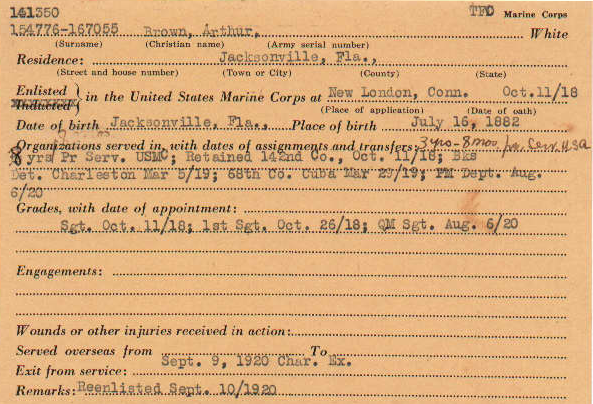 141350 TFC Marine Corps
154776-167055 Brown, Arthur, White
(Surname) (Christian name) (Army serial number)
Residence: Jacksonville, Fla.,
(Street and house number) (Town or City) (County) (State)
Enlisted
Inducted } in the United States Marine Corps at New London, Conn. Oct.11/18
(Place of application) (Date of oath)
Date of birth Jacksonville, Fla., Place of birth July 16, 1882
Organizations served in, with dates of assignments and transfers: 3 yrs-8 mos USA
8 yrs Pr Serv. USMC; Retained 142nd Co., Oct. 11/18; Bks
Det. Charleston Mar 5/19; 68th Co. Cuba Mar 29/19; PM Dept. Aug.
6/20
Grades, with date of appointment:
Sgt. Oct. 11/18; 1st Sgt. Oct. 26/18; QM Sgt. Aug. 6/20
Engagements:
Wounds or other injuries received in action:
Served overseas from To
Exit from service: Sept. 9, 1920 Char. Ex.
Remarks: Reenlisted Sept. 10/1920